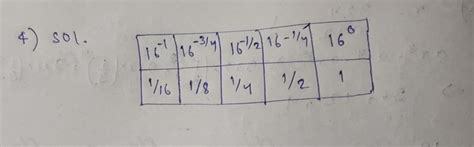 4) sol.
16⁻¹ 16⁻³/⁴ 16⁻¹/² 16⁻¹/⁴ 16⁰
1/16 1/8 1/4 1/2 1